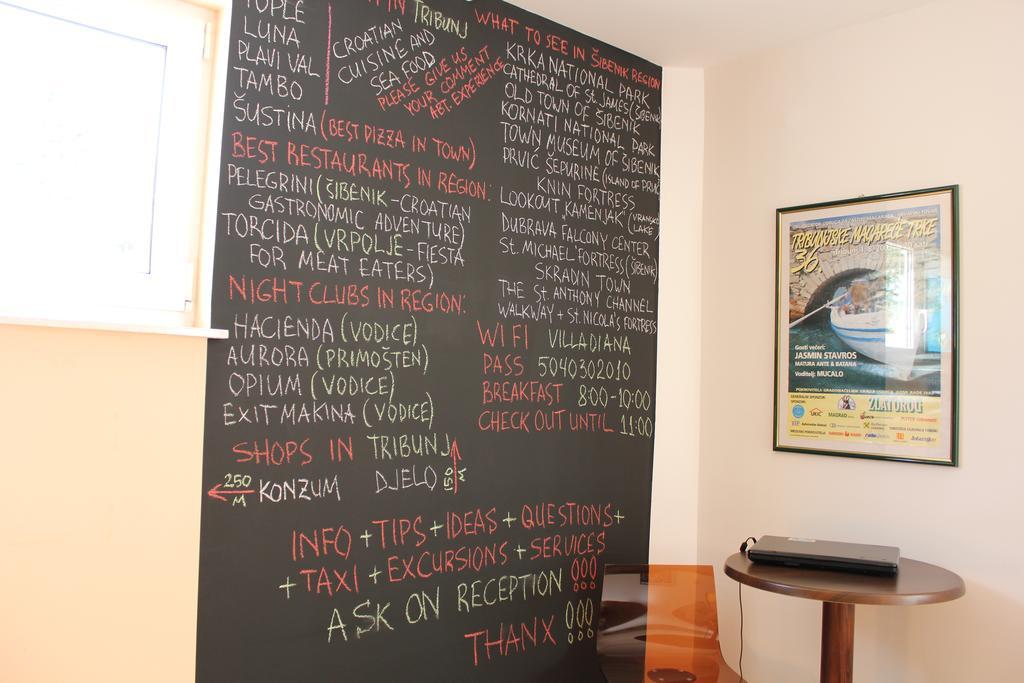 TOPLE
LUNA
PLAVI VAL
TAMBO
ŠUSTINA (BEST PIZZA IN TOWN)
IN TRIBUNJ
CROATIAN
CUISINE AND
SEA FOOD
PLEASE GIVE US
YOUR COMMENT
ABT. EXPERIENCE
BEST RESTAURANTS IN REGION:
PELEGRINI (ŠIBENIK-CROATIAN
GASTRONOMIC ADVENTURE)
TORCIDA (VRPOLJE-FIESTA
FOR MEAT EATERS)
NIGHT CLUBS IN REGION:
HACIENDA (VODICE)
AURORA (PRIMOŠTEN)
OPIUM (VODICE)
EXIT MAKINA (VODICE)
SHOPS IN TRIBUNJ
250 M KONZUM DJELO 150 M
WHAT TO SEE IN ŠIBENIK REGION
KRKA NATIONAL PARK
CATHEDRAL OF St. JAMES (ŠIBENIK
OLD TOWN OF ŠIBENIK
KORNATI NATIONAL PARK
TOWN MUSEUM OF ŠIBENIK
PRVIĆ ŠEPURINE (ISLAND OF PRVIĆ
KNIN FORTRESS
LOOKOUT „KAMENJAK" (VRANSKO
LAKE)
DUBRAVA FALCONY CENTER
St. MICHAEL FORTRESS (ŠIBENIK
SKRADIN TOWN
THE St. ANTHONY CHANNEL
WALKWAY + St. NICOLA'S FORTRESS
WIFI VILLADIANA
PASS 5040302010
BREAKFAST 8:00-10:00
CHECK OUT UNTIL 11:00
INFO + TIPS + IDEAS + QUESTIONS +
+ TAXI + EXCURSIONS + SERVICES
ASK ON RECEPTION !!!
THANX !!!
TRIBUNJSKE MAGAREĆE TRKE
36.
Gosti večeri:
JASMIN STAVROS
MATURA ANTE & BATANA
Voditelj: MUCALO
GENERALNI SPONZOR:
SPONZORI:
ZLATOROG